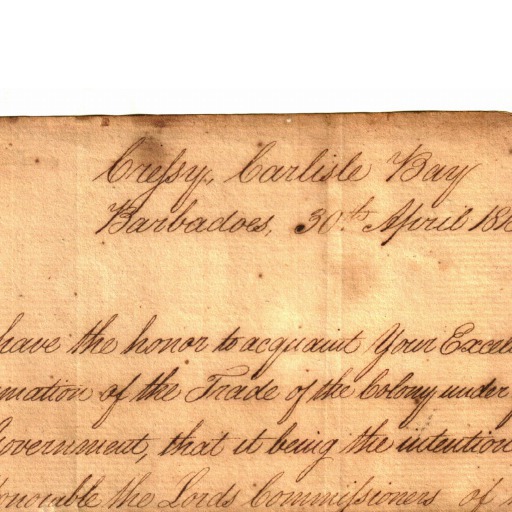 Cressy, Carlisle Bay
Barbadoes, 30th April
have the honor to acquaint Your
of the Trade of the Colony under
Government, that it being the intention
the Lords Commissioners of